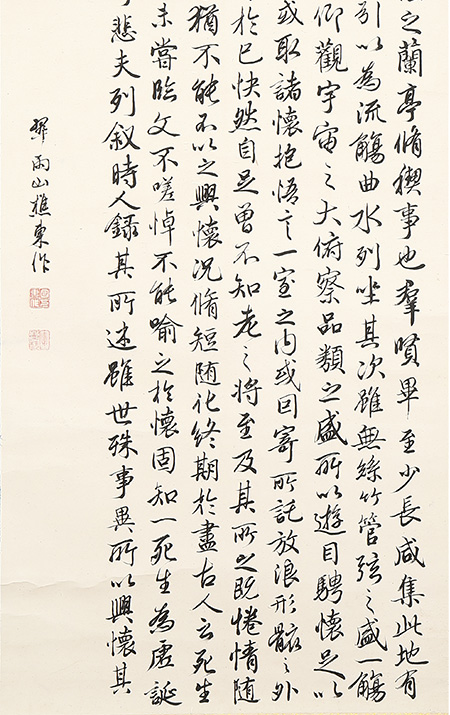 之蘭亭脩稧事也羣賢畢至少長咸集此地有
引以為流觴曲水列坐其次雖無絲竹管弦之盛一觴
仰觀宇宙之大俯察品類之盛所以遊目騁懷足以
或取諸懷抱悟言一室之內或因寄所託放浪形骸之外
於己快然自足曾不知老之将至及其所之既惓情随
猶不能不以之興懷況脩短随化終期於盡古人云死生
未嘗臨文不嗟悼不能喻之於懷固知一死生為虛誕
悲夫列叙時人錄其所述雖世殊事異所以興懷其
雨山樵東作